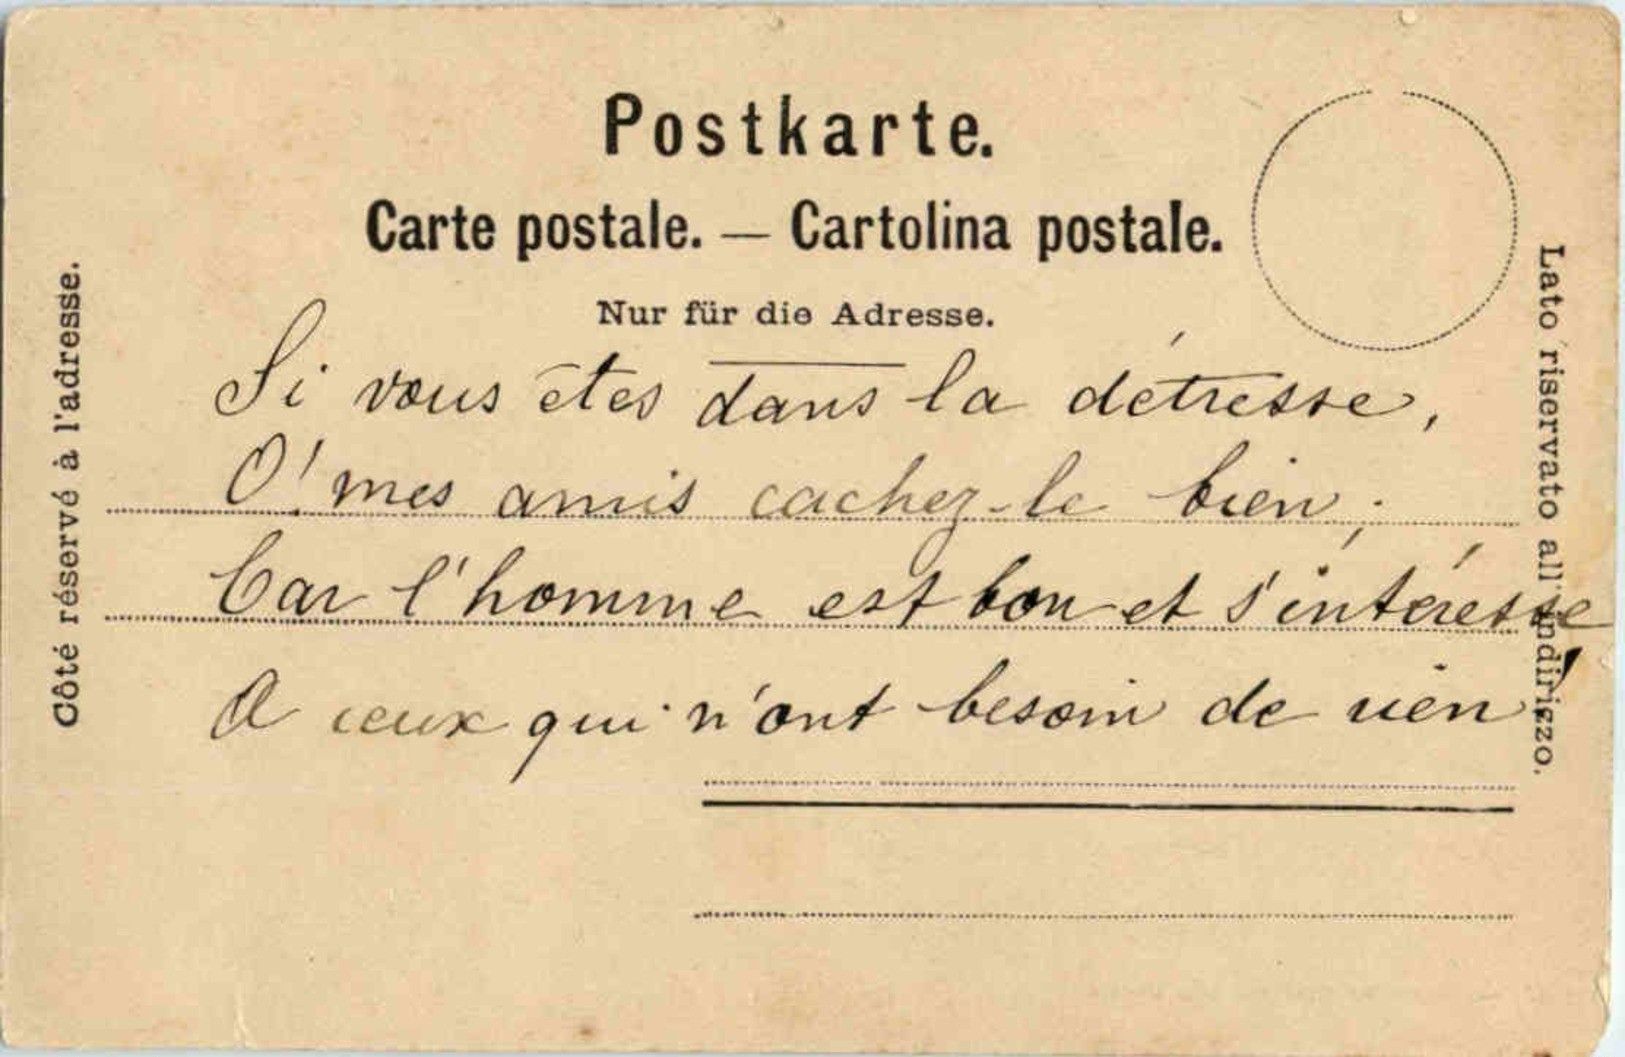 Postkarte.
Carte postale. — Cartolina postale.
Nur für die Adresse.
Côté réservé à l'adresse.
Si vous êtes dans la détresse,
O! mes amis cachez-le bien;
Car l'homme est bon et s'intéresse
A ceux qui n'ont besoin de rien!
Lato riservato all'indirizzo.